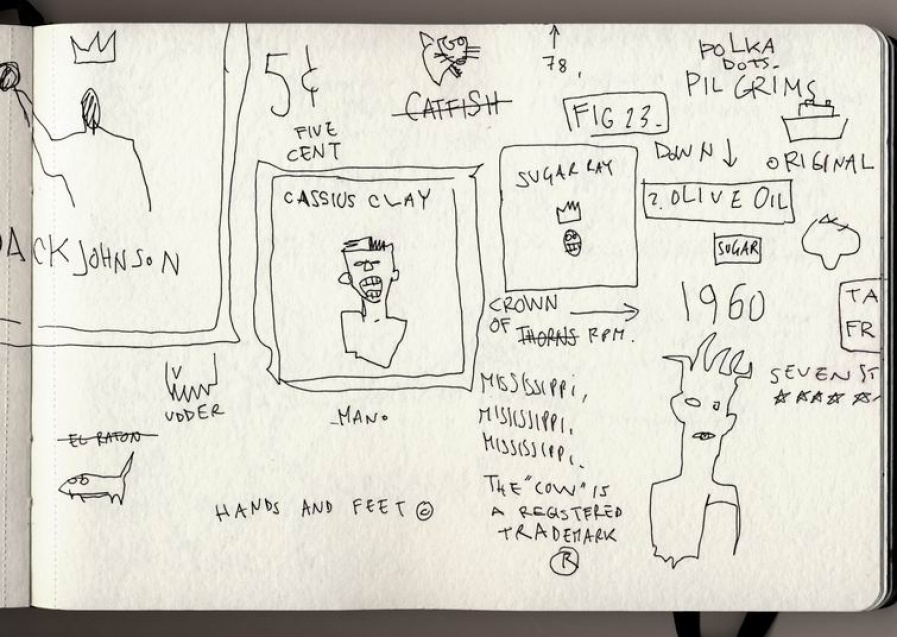 ACK JOHNSON
5¢
FIVE
CENT
CATFISH
78.
FIG 23.
POLKA
DOTS.
PILGRIMS
ORIGINAL
DOWN
2. OLIVE OIL
SUGAR
CASSIUS CLAY
SUGAR RAY
CROWN
OF THORNS RPM.
1960
TA
FR
SEVEN ST
UDDER
EL RATON
MANO
MISSISSIPPI,
MISISSIPPI,
MISSISSIPPI,
THE "COW" IS
A REGISTERED
TRADEMARK
®
HANDS AND FEET ©